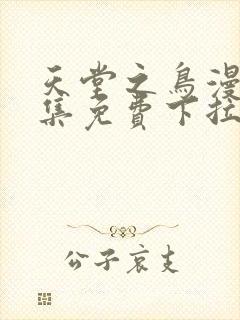 天堂之鳥漫
集免費下拉
公子哀支